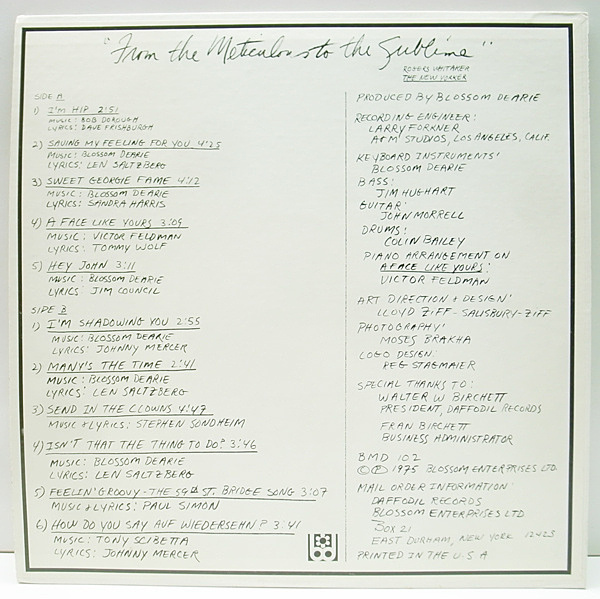 "From the Meticulous to the Sublime"
ROGERS WHITAKER
THE NEW YORKER
SIDE A
1) I'M HIP 2:51
MUSIC: BOB DOROUGH
LYRICS: DAVE FRISHBURGH
2) SAVING MY FEELING FOR YOU 4:25
MUSIC: BLOSSOM DEARIE
LYRICS: LEN SALTZBERG
3) SWEET GEORGIE FAME 4:12
MUSIC: BLOSSOM DEARIE
LYRICS: SANDRA HARRIS
4) A FACE LIKE YOURS 3:09
MUSIC: VICTOR FELDMAN
LYRICS: TOMMY WOLF
5) HEY JOHN 3:11
MUSIC: BLOSSOM DEARIE
LYRICS: JIM COUNCIL
SIDE B
1) I'M SHADOWING YOU 2:55
MUSIC: BLOSSOM DEARIE
LYRICS: JOHNNY MERCER
2) MANY'S THE TIME 2:41
MUSIC: BLOSSOM DEARIE
LYRICS: LEN SALTZBERG
3) SEND IN THE CLOWNS 4:47
MUSIC + LYRICS: STEPHEN SONDHEIM
4) ISN'T THAT THE THING TO DO? 3:46
MUSIC: BLOSSOM DEARIE
LYRICS: LEN SALTZBERG
5) FEELIN' GROOVY - THE 59th ST. BRIDGE SONG 3:07
MUSIC + LYRICS: PAUL SIMON
6) HOW DO YOU SAY AUF WIEDERSEHN? 3:41
MUSIC: TONY SCIBETTA
LYRICS: JOHNNY MERCER
PRODUCED BY BLOSSOM DEARIE
RECORDING ENGINEER:
LARRY FORKNER
A+M STUDIOS, LOS ANGELES, CALIF.
KEYBOARD INSTRUMENTS:
BLOSSOM DEARIE
BASS:
JIM HUGHART
GUITAR:
JOHN MORRELL
DRUMS:
COLIN BAILEY
PIANO ARRANGEMENT ON
A FACE LIKE YOURS:
VICTOR FELDMAN
ART DIRECTION + DESIGN:
LLOYD ZIFF - SALISBURY-ZIFF
PHOTOGRAPHY:
MOSES BRAKHA
LOGO DESIGN:
REG STAGMAIER
SPECIAL THANKS TO:
WALTER W BIRCHETT
PRESIDENT, DAFFODIL RECORDS
FRAN BIRCHETT
BUSINESS ADMINISTRATOR
BMD 102
© ℗ 1975 BLOSSOM ENTERPRISES LTD.
MAIL ORDER INFORMATION:
DAFFODIL RECORDS
BLOSSOM ENTERPRISES LTD
BOX 21
EAST DURHAM, NEW YORK 12423
PRINTED IN THE U.S.A